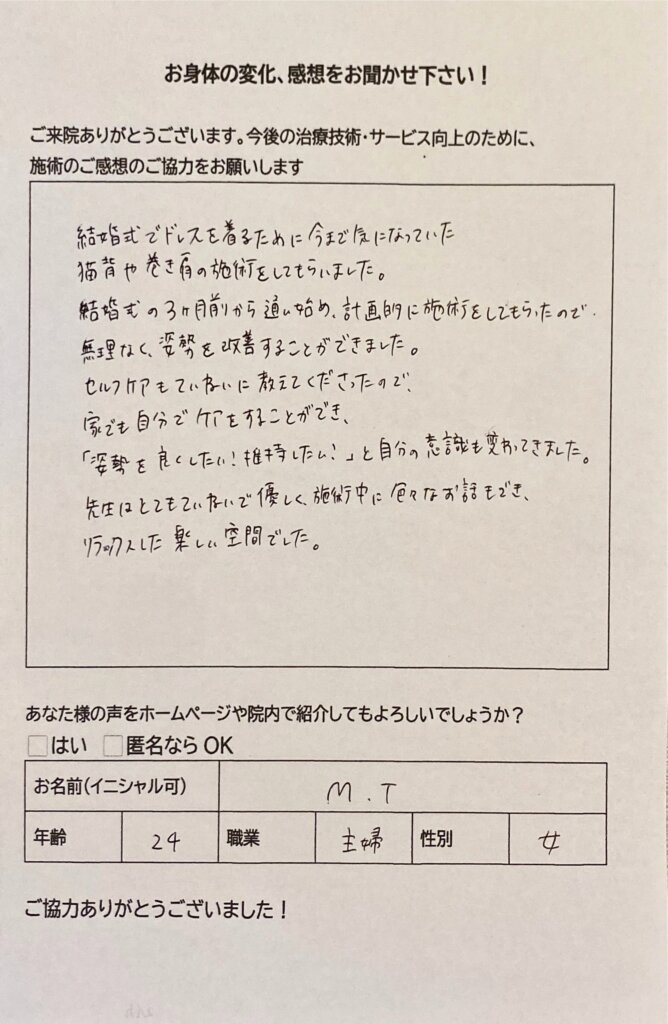 お身体の変化、感想をお聞かせ下さい！
ご来院ありがとうございます。今後の治療技術・サービス向上のために、
施術のご感想のご協力をお願いします
結婚式でドレスを着るために今まで気になっていた
猫背や巻き肩の施術をしてもらいました。
結婚式の3ヶ月前から通い始め、計画的に施術をしてもらったので、
無理なく、姿勢を改善することができました。
セルフケアもていねいに教えてくださったので、
家でも自分でケアをすることができ、
「姿勢を良くしたい！維持したい！」と自分の意識も変わってきました。
先生はとてもていねいで優しく、施術中に色々なお話もでき、
リラックスした楽しい空間でした。
あなた様の声をホームページや院内で紹介してもよろしいでしょうか？
□はい □匿名なら OK
お名前（イニシャル可） M.T
年齢 24 職業 主婦 性別 女
ご協力ありがとうございました！